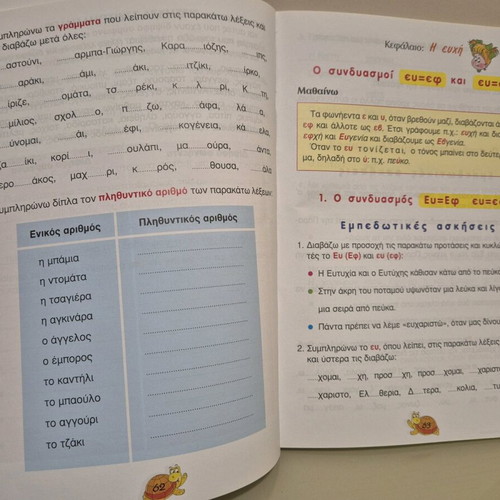 μπληρώνω τα γράμματα που λείπουν στις παρακάτω λέξεις και
διαβάζω μετά όλες:
......αστούνι, ......αρμπα-Γιώργης, Καρα......ιόζης, ......της,
......αράκι, ......άμι, ......άκι, ......ιτζίκι, ......ίρκο,
......ίριζε, ......ομάτα, το......ρέκι, κ......λ......ρί, Κ......τη,
......μίλιος, σχολ......ο, π......ζω, ......άφα, λά......α,
......ύνομαι, ......άι, ......έφι, ......κογένεια, κά......ελα,
......ζα......ίκι, κορί......ι, ......ουλάπι, μα......ούρα, ......άντα,
ερο......άκος, μαχ......ρι, κ......ρός, ......θουσα, ......όλα
υμπληρώνω δίπλα τον πληθυντικό αριθμό των παρακάτω λέξεων:
Ενικός αριθμός Πληθυντικός αριθμός
η μπάμια
η ντομάτα
η τσαγιέρα
η αγκινάρα
ο άγγελος
ο έμπορος
το καντήλι
το μπαούλο
το αγγούρι
το τζάκι
62
Κεφάλαιο: Η ευχή
Ο συνδυασμοί ευ=εφ και ευ=ε
Μαθαίνω
Τα φωνήεντα ε και υ, όταν βρεθούν μαζί, διαβάζονται ά
εφ και άλλοτε ως εβ. Έτσι γράφουμε π.χ.: ευχή και δι
εφχή και Ευγενία και διαβάζουμε ως Εβγενία.
Όταν το ευ τονίζεται, ο τόνος μπαίνει στο δεύτε
μα, δηλαδή στο ύ: π.χ. πεύκο.
1. Ο συνδυασμός Ευ=Εφ ευ=ε
Εμπεδωτικές ασκήσεις
1. Διαβάζω με προσοχή τις παρακάτω προτάσεις και κυκλώ
τές το Ευ (Εφ) και ευ (εφ):
● Η Ευτυχία και ο Ευτύχης κάθισαν κάτω από το πεύκ
● Στην άκρη του ποταμού υψωνόταν μια λεύκα και λίγ
μια σειρά από πεύκα.
● Πάντα πρέπει να λέμε «ευχαριστώ», όταν μας δίνου
2. Συμπληρώνω το ευ, όπου λείπει, στις παρακάτω λέξεις
και ύστερα τις διαβάζω:
......χομαι, ......χη, προσ......χη, προσ......χομαι, ......χαριστ
......χαριστο, Ελ......θερία, Δ......τερα, ......κολία, ......τυ
63